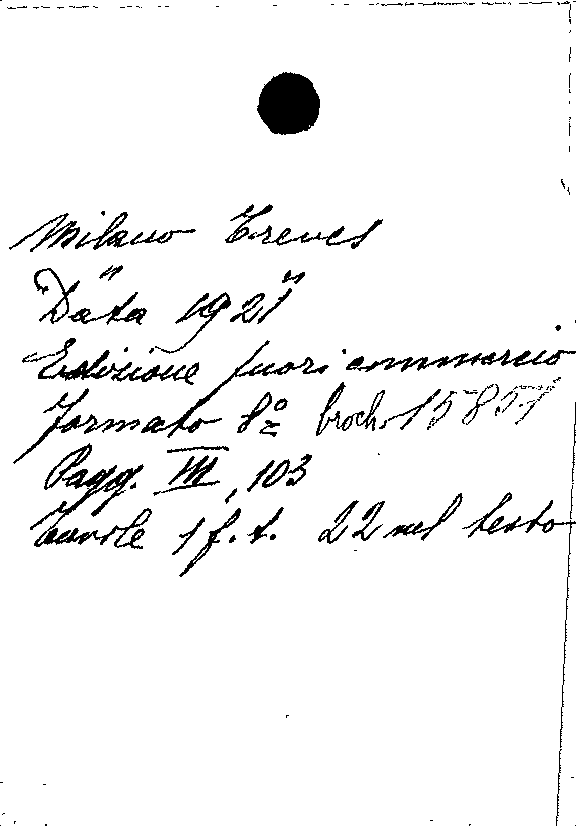 Milano Treves
"Data 1921"
Edizione fuori commercio
Formato 8º broch. 15851
Pagg. III, 103
Tavole 1 f. t. 22 nel testo